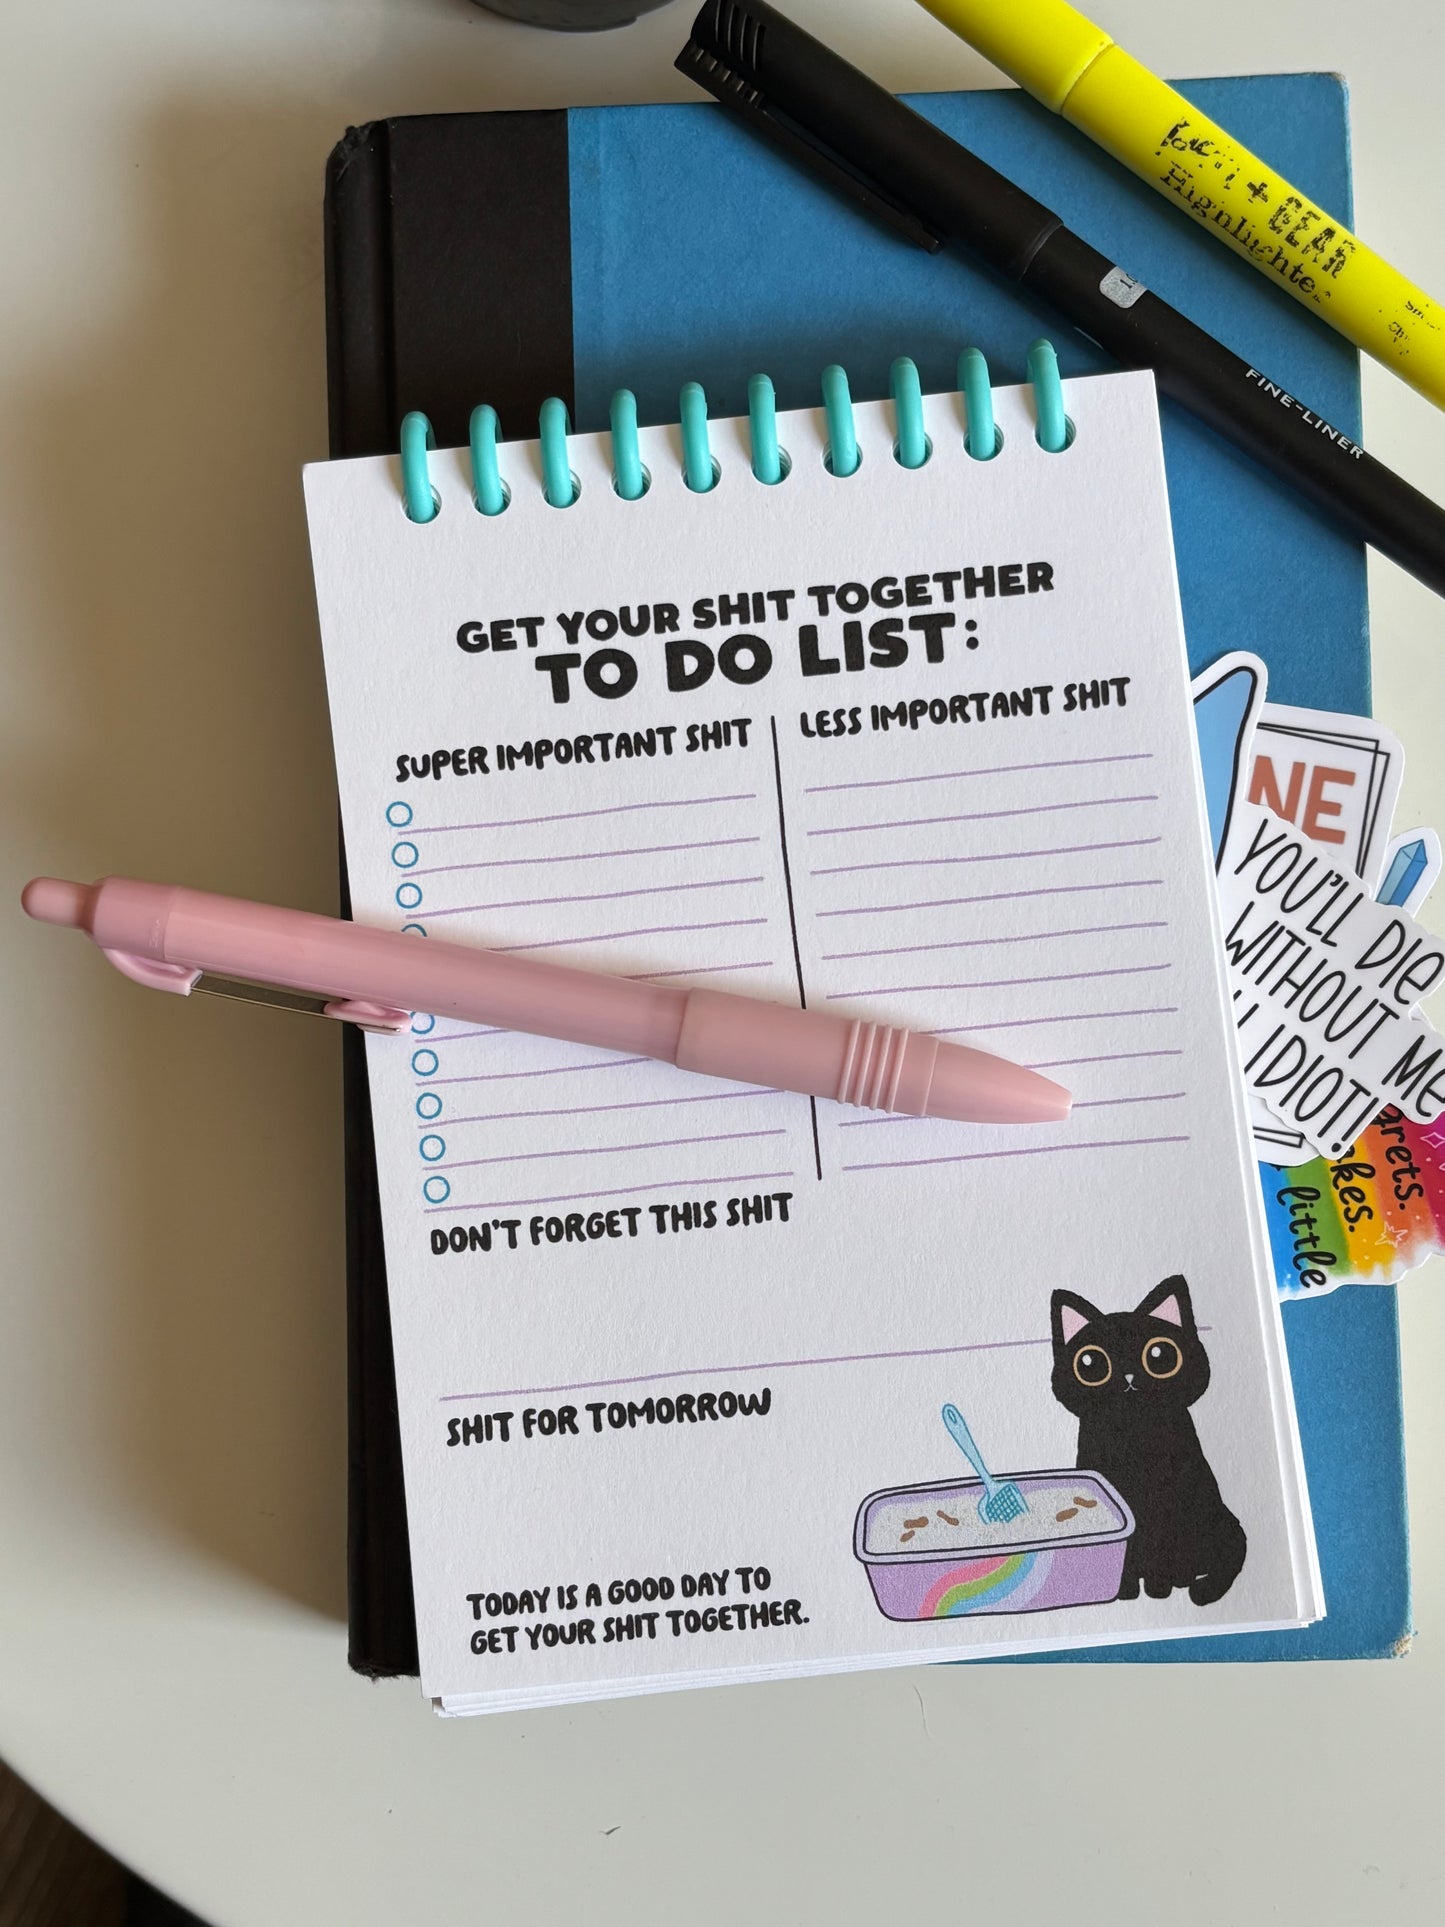 GEAR
FINE-LINER
GET YOUR SHIT TOGETHER
TO DO LIST:
SUPER IMPORTANT SHIT
LESS IMPORTANT SHIT
DON'T FORGET THIS SHIT
SHIT FOR TOMORROW
TODAY IS A GOOD DAY TO
GET YOUR SHIT TOGETHER.
NE
YOU'LL DIE
WITHOUT ME
IDIOT!
little